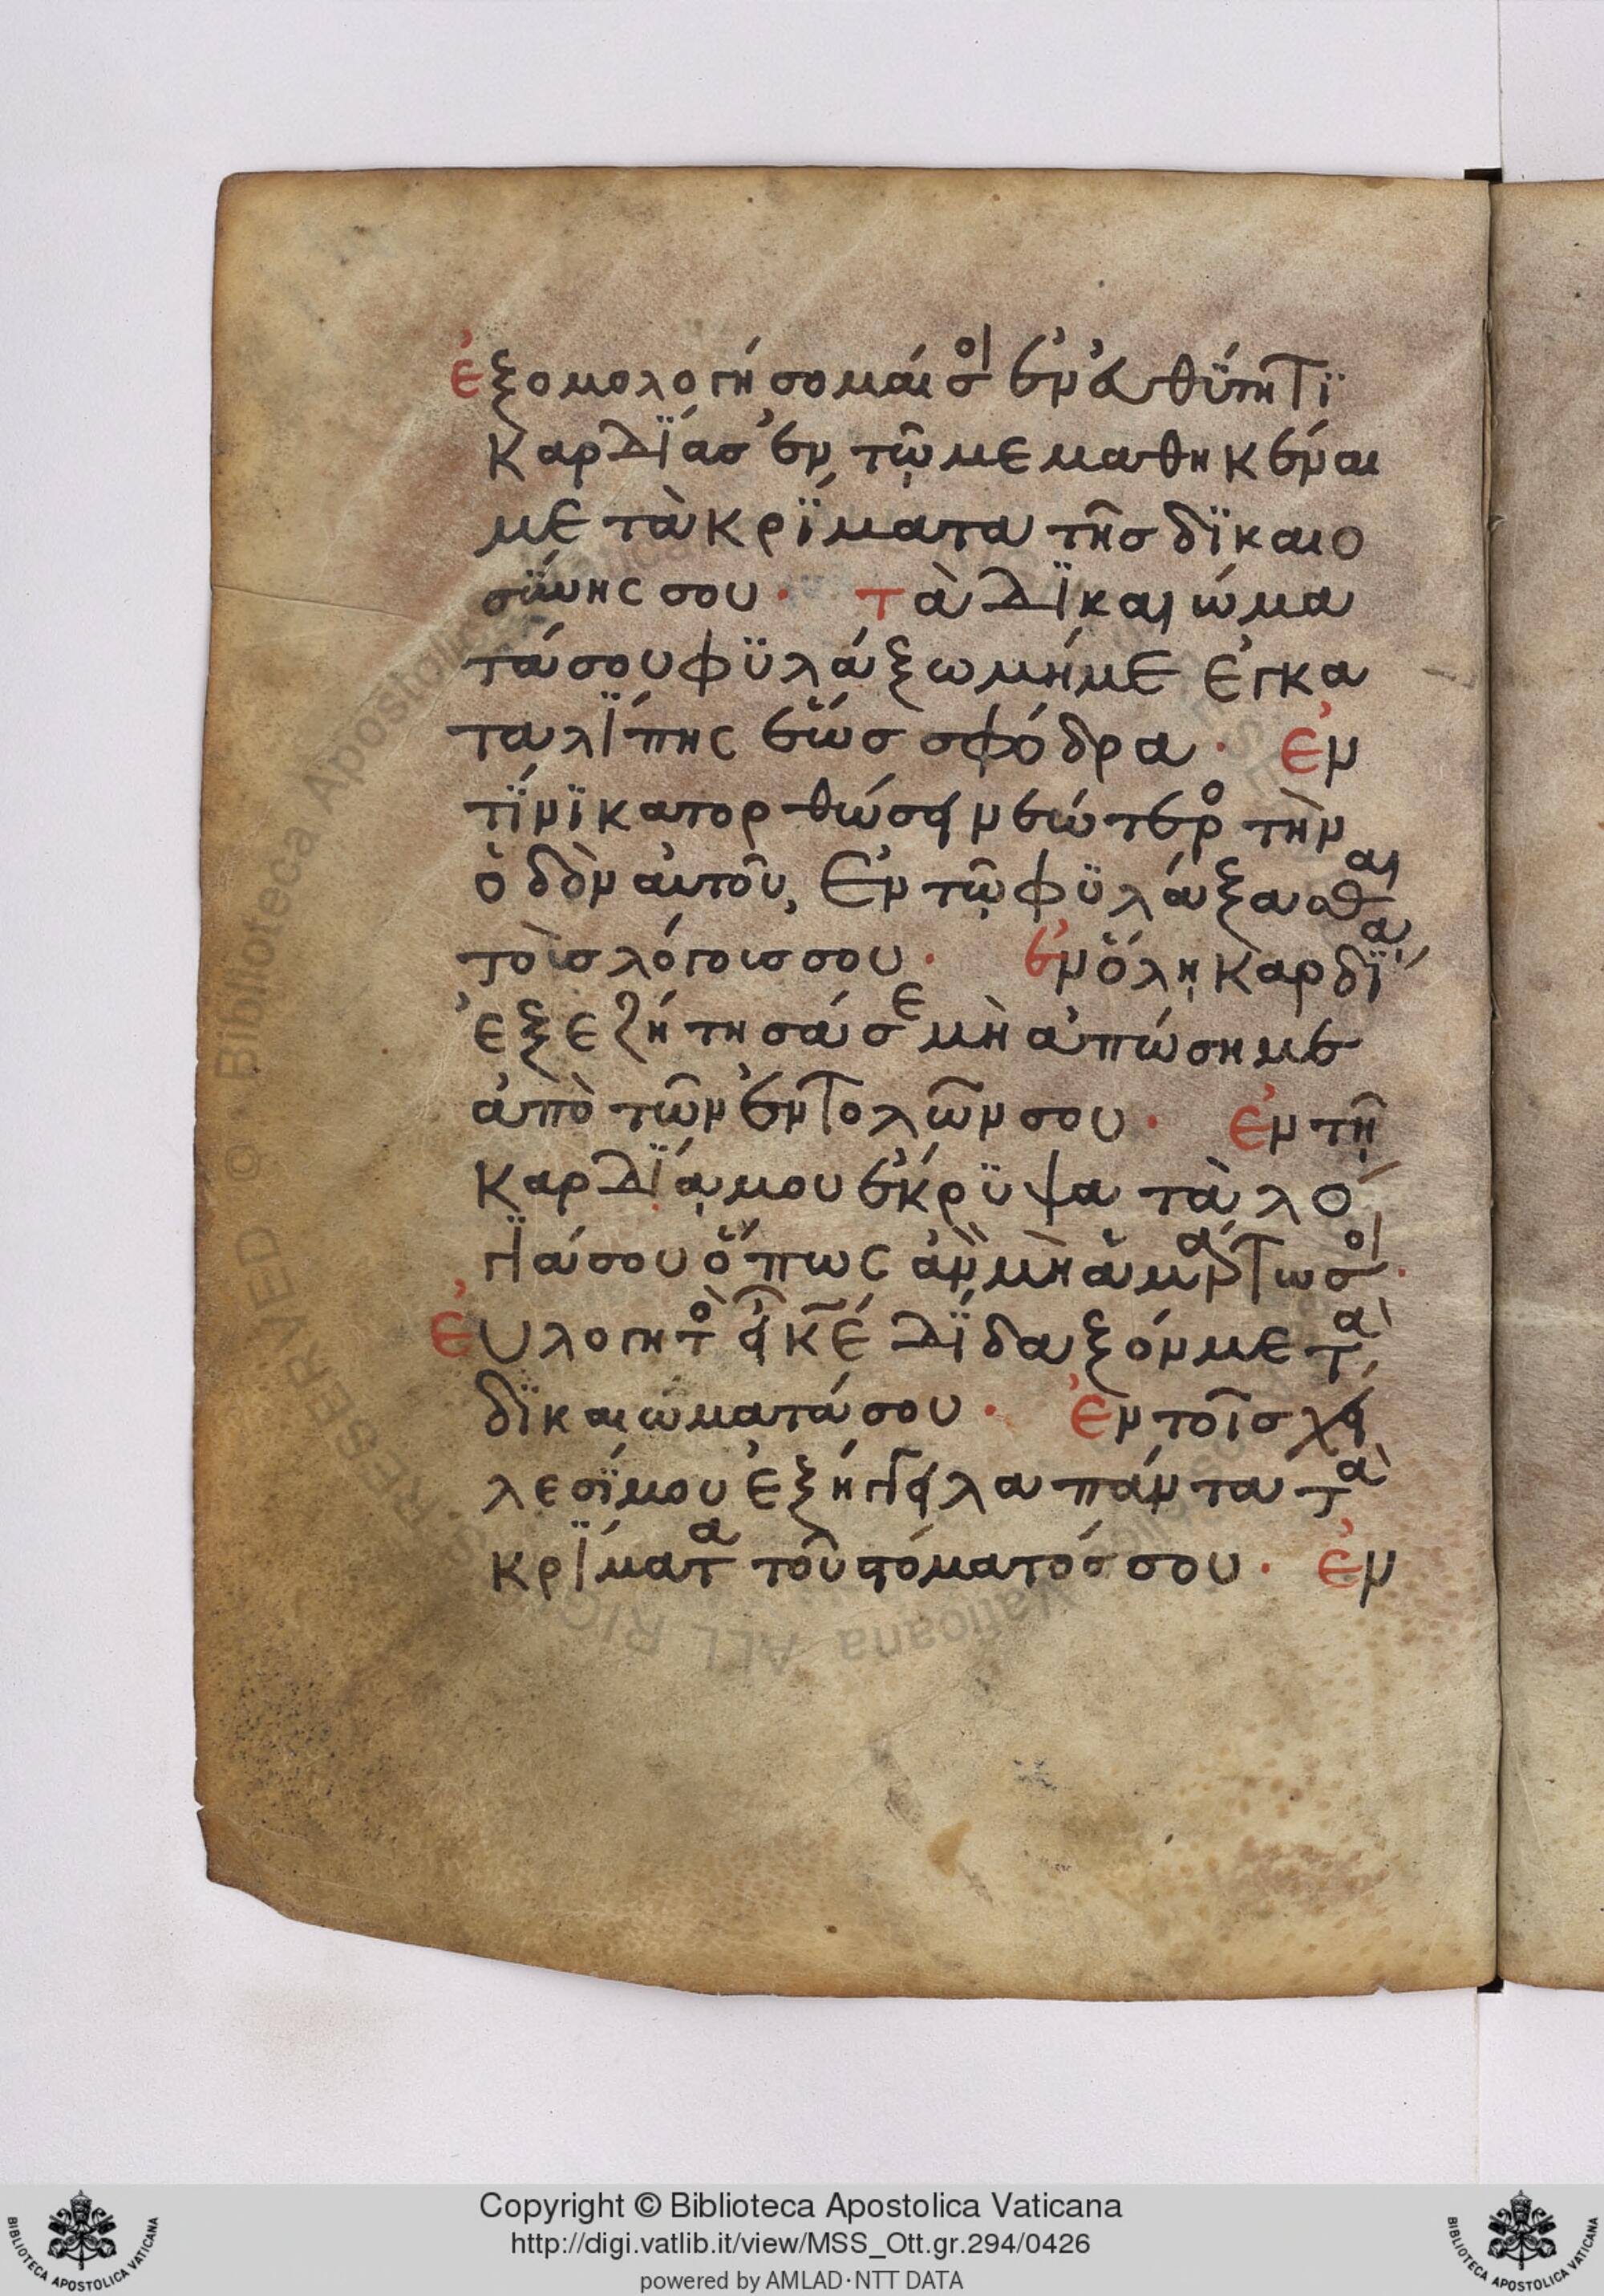 ἐξομολογήσομαί σοι ἐν εὐθύτητϊ
καρδΐας ἐν τῷ μεμαθηκέναι
με τὰ κρΐματα τῆς δϊκαιο
σύνης σου· τὰ δϊκαιώμα
τά σου φϋλάξω μή με ἐγκα
ταλΐπης ἕως σφόδρα· ἐν
τΐνϊ κατορθώσει νεώτερο τὴν
ὁδὸν αὐτοῦ, Ἐν τῷ φϋλάξασθαι
τοὺσ λόγουσ σου· ἐν ὅλῃ καρδΐα
ἐξεζήτησά σε μὴ ἀπώσημε
ἀπὸ τῶν ἐντολῶν σου· ἐν τῇ
καρδΐᾳ μου ἔκρϋψα τὰ λό
γϊά σου ὅπως ἂν μὴ ἁμάρτω σοι·
Εὐλογητὸ εἶ κ̅ε̅ δΐδαξόν με τὰ
δϊκαιώματά σου· ἐν τοῖσ χεί
λεσΐ μου ἐξήγγειλα πάντα τὰ
κρΐματα τοῦ στόματόσ σου· ἐν
Copyright © Biblioteca Apostolica Vaticana
http://digi.vatlib.it/view/MSS_Ott.gr.294/0426
powered by AMLAD·NTT DATA
BIBLIOTECA APOSTOLICA VATICANA
BIBLIOTECA APOSTOLICA VATICANA